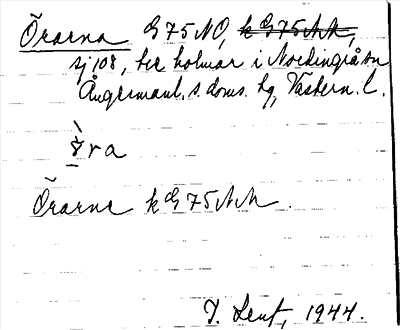 Örarna G75NO, k G75AA,
sj 108, tre holmar i Nordingrå sn
Ångermanl. s. doms. hg, Västern. l.
ö̀ra
Örarne k G75AA.
J. Lenf, 1944.